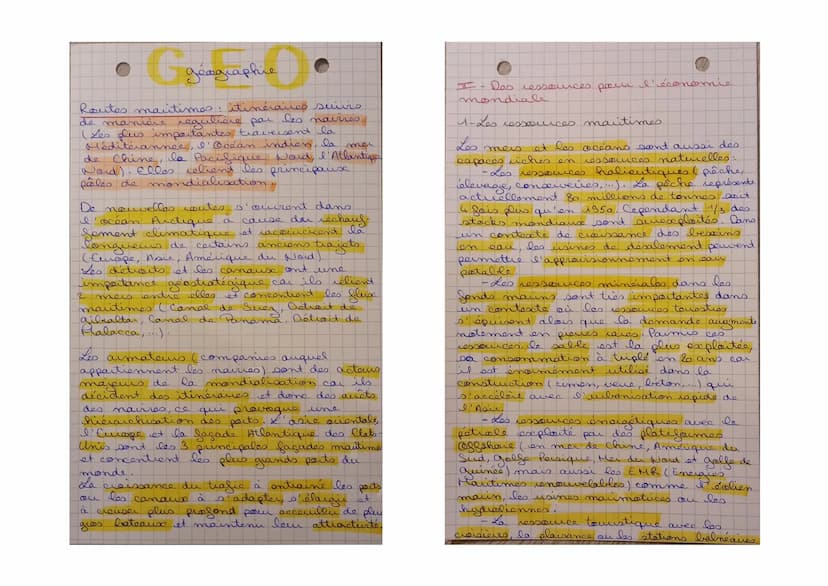 GEO
géographie
Routes maritimes : itinéraires suivis
de manière régulière par les navires
(Les plus importantes traversent la
Méditerranée, l'Océan indien, la mer
de Chine, la Pacifique Nord, l'Atlantique
Nord). Elles relient les principaux
pôles de mondialisation.
De nouvelles routes s'ouvrent dans
l'océan Arctique à cause du réchauf-
fement climatique et raccourcirent la
longueur de certains anciens trajets
(Europe, Asie, Amérique du Nord)
Les détroits et les canaux ont une
importance géostratégique car ils relient
2 mers entre elles et concentrent les flux
maritimes (Canal de Suez, Détroit de
Gibraltar, Canal de Panama, Détroit de
Malacca, ...).
Les armateurs (companies auquel
appartiennent les navires) sont des acteurs
majeurs de la mondialisation car ils
décident des itinéraires et donc des arrêts
des navires, ce qui provoque une
hiérarchisation des ports. L'asie orientale,
l'Europe et la façade Atlantique des Etats
Unis sont les 3 principales façades maritimes
et concentrent les plus grands ports du
monde.
La croissance du trafic à entraîné les ports
ou les canaux à s'adapter, s'élargir et
à creuser plus profond pour accueillir de plus
gros bateaux et maintenir leur attractivité.
II - Des ressources pour l'économie
mondiale
1 - Les ressources maritimes
Les mers et les océans sont aussi des
espaces riches en ressources naturelles :
- Les ressources halieutiques (pêche,
élevage, conserveries, ...). La pêche représente
actuellement 80 millions de tonnes soit
4 fois plus qu'en 1950. Cependant 1/3 des
stocks mondiaux sont surexploités. Dans
un contexte de croissance des besoins
en eau, les usines de désalement peuvent
permettre l'approvisionnement en eau
potable.
- Les ressources minérales dans les
fonds marins sont très importantes dans
un contexte où les ressources terrestres
s'épuisent alors que la demande augmente
notement en pierres rares. Parmis ces
ressources le sable est la plus exploitée,
sa consommation à triplé en 20 ans car
il est énormément utilisé dans la
construction (ciment, verre, béton, ...) qui
s'accélère avec l'urbanisation rapide de
l'Asie.
- Les ressources énergétiques avec le
pétrole exploité par des plateformes
Offshore (en mer de Chine, Amérique du
Sud, Golfe Persique, Mer du Nord et golfe de
Guinée) mais aussi les EMR (Energies
Maritimes renouvelables) comme l'éolien
marin, les usines marémotrices ou les
hydroliennes.
- La ressource touristique avec les
croisières, la plaisance ou les stations balnéaires.